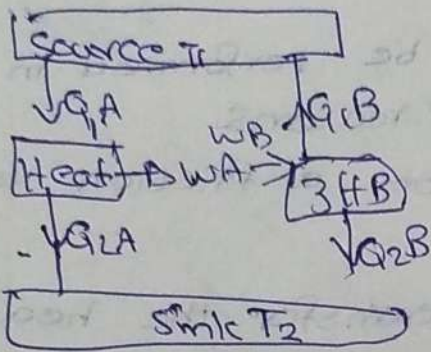 Source T1
Q1A
Q1B
WB
Heat
WA
3HB
Q2A
Q2B
Sink T2